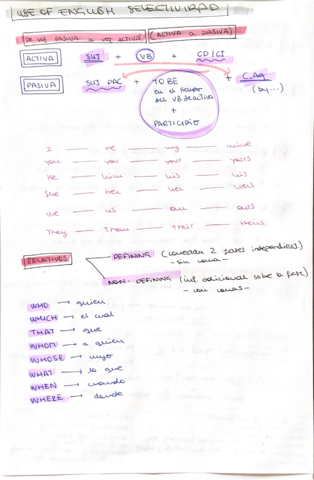 USE OF ENGLISH SELECTIVIDAD
DE VOZ PASIVA a VOZ ACTIVA (ACTIVA a PASIVA)
ACTIVA SUJ + VB + CD/CI
PASIVA SUJ PAC + TO BE + C.Ag
en el tiempo (by...)
del VB de activa
+
PARTICIPIO
I — me — my — mine
you — you — your — yours
He — him — his — his
She — her — her — hers
We — us — our — ours
They — Them — Their — theirs.
RELATIVES
DEFINING (conectan 2 frases
- sin coma -
NON-DEFINING (inf. adicional sobre la frase)
- con comas -
WHO → quien
WHICH → el cual
THAT → que
WHOM → a quien
WHOSE → cuyo
WHAT → lo que
WHEN → cuando
WHERE → donde